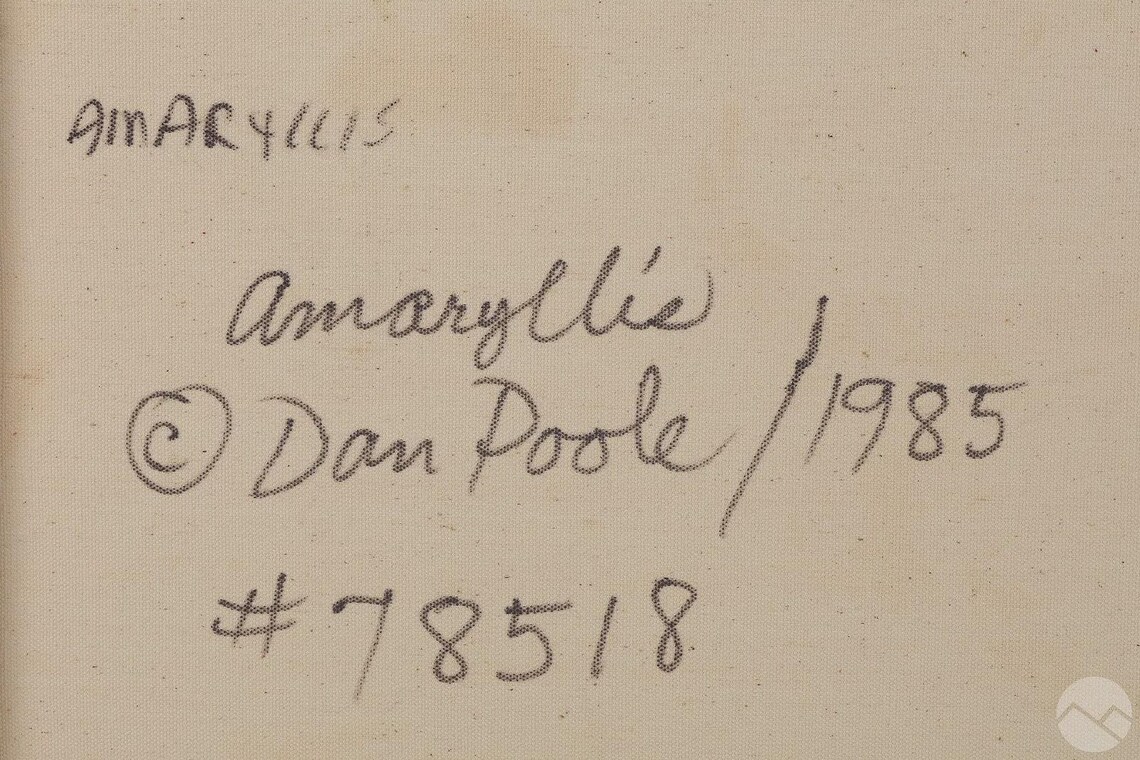 AMARYLLIS
Amaryllis
© Dan Poole / 1985
# 78518